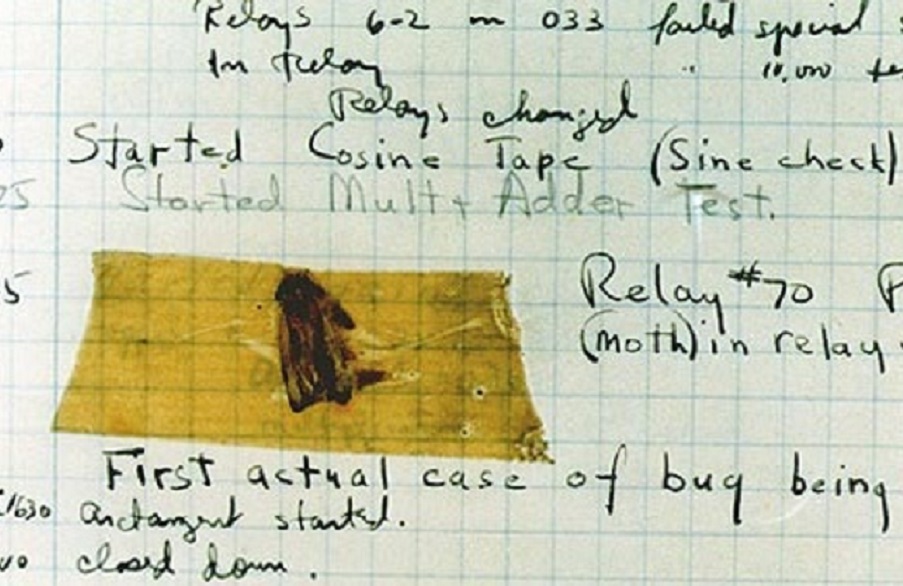 Relays 6-2 in 033 failed special s
In Relay " 10,000 te
Relays changed
Started Cosine Tape (Sine check)
25 Started Mult+ Adder Test.
5 Relay #70 P
(moth) in relay.
First actual case of bug being
1630 arctangent started.
closed down.